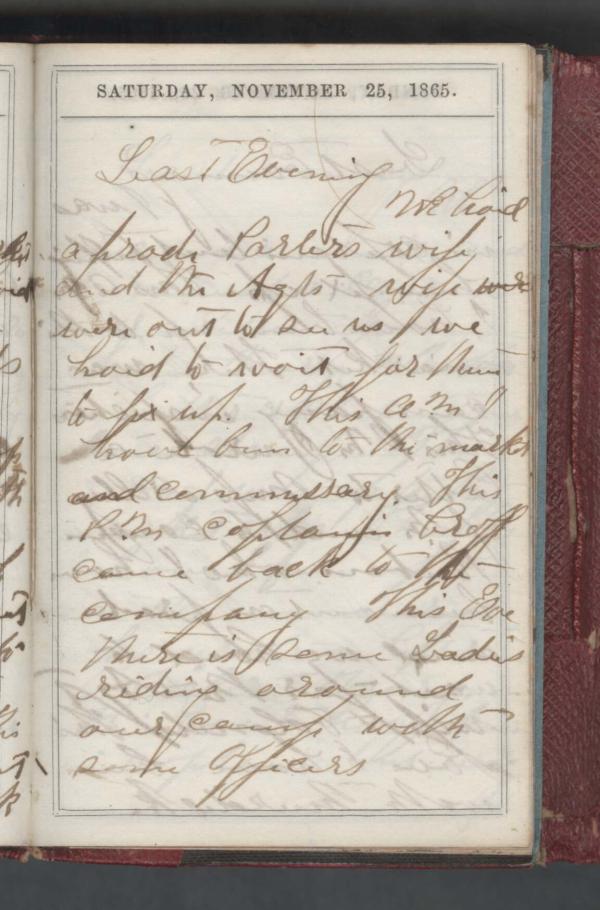 SATURDAY, NOVEMBER 25, 1865.
Last Evening
We had
a prade Parkers wife
and the Agts wife were
were out to see us we
had to wait for them
to fix up. This A M I
have been to the market
and commissary. This
P.M captain Croff
came back to the
company This Eve
there is some Ladies
riding around
our camp with
some Officers